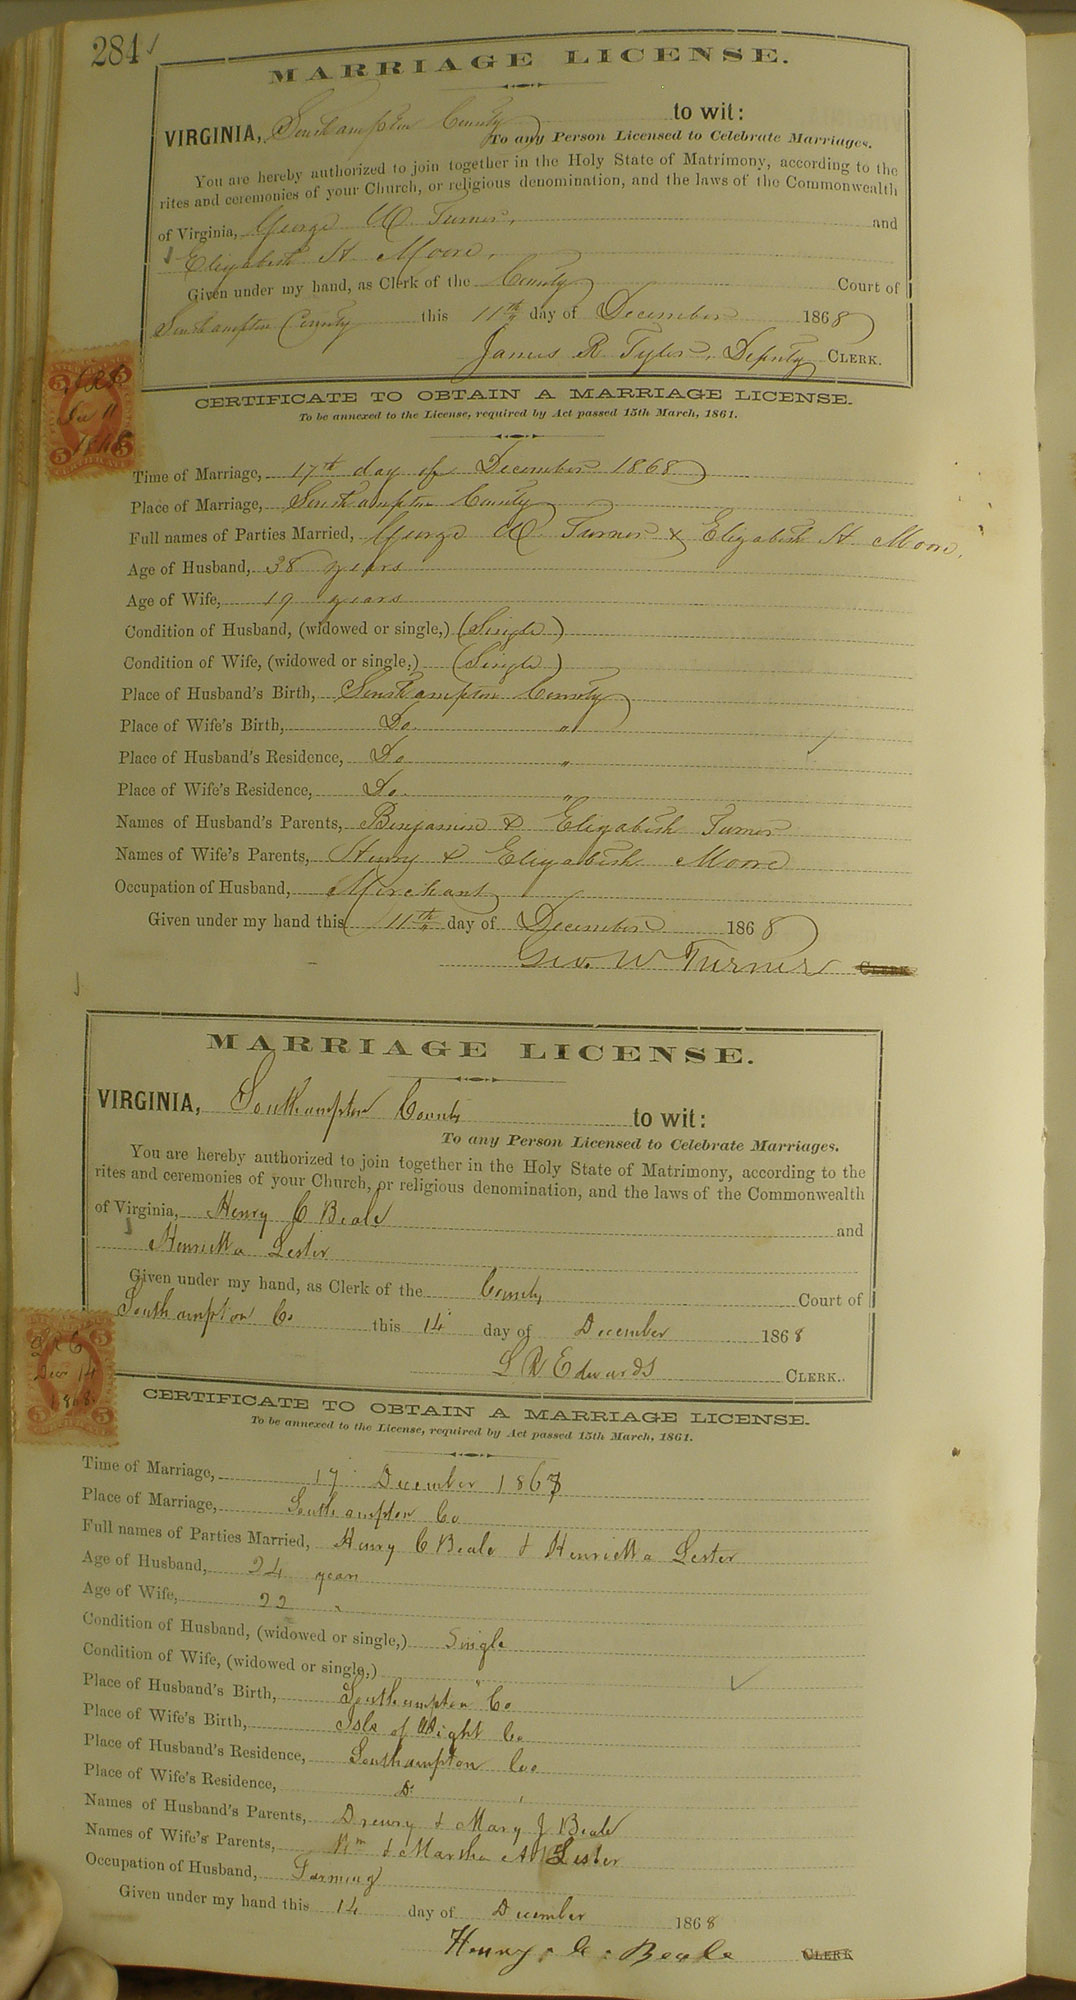 284
MARRIAGE LICENSE.
VIRGINIA, Southampton County to wit:
To any Person Licensed to Celebrate Marriages.
You are hereby authorized to join together in the Holy State of Matrimony, according to the
rites and ceremonies of your Church, or religious denomination, and the laws of the Commonwealth
of Virginia, George W. Turner, and
Elizabeth H. Moore,
Given under my hand, as Clerk of the County Court of
Southampton County this 11th day of December 1868
James R Tyler, Deputy CLERK.
CERTIFICATE TO OBTAIN A MARRIAGE LICENSE.
To be annexed to the License, required by Act passed 15th March, 1861.
Dec 11
1868
Time of Marriage, 17th day of December 1868
Place of Marriage, Southampton County
Full names of Parties Married, George W. Turner & Elizabeth H. Moore.
Age of Husband, 38 years
Age of Wife, 19 years
Condition of Husband, (widowed or single,) (Single)
Condition of Wife, (widowed or single,) (Single)
Place of Husband's Birth, Southampton County
Place of Wife's Birth, Do. "
Place of Husband's Residence, Do "
Place of Wife's Residence, Do. "
Names of Husband's Parents, Benjamin & Elizabeth Turner
Names of Wife's Parents, Henry & Elizabeth Moore
Occupation of Husband, Merchant
Given under my hand this 11th day of December 1868
Geo. W Turner CLERK
MARRIAGE LICENSE.
VIRGINIA, Southampton County to wit:
To any Person Licensed to Celebrate Marriages.
You are hereby authorized to join together in the Holy State of Matrimony, according to the
rites and ceremonies of your Church, or religious denomination, and the laws of the Commonwealth
of Virginia, Henry C Beale and
Henrietta Lester
Given under my hand, as Clerk of the County Court of
Southampton Co this 14 day of December 1868
L R Edwards CLERK.
Dec 14
1868
CERTIFICATE TO OBTAIN A MARRIAGE LICENSE.
To be annexed to the License, required by Act passed 15th March, 1861.
Time of Marriage, 17 December 1868
Place of Marriage, Southampton Co
Full names of Parties Married, Henry C Beale & Henrietta Lester
Age of Husband, 24 years
Age of Wife, 22 "
Condition of Husband, (widowed or single,) Single
Condition of Wife, (widowed or single,) "
Place of Husband's Birth, Southampton Co
Place of Wife's Birth, Isle of Wight Co
Place of Husband's Residence, Southampton Co
Place of Wife's Residence, Do "
Names of Husband's Parents, Drewry & Mary J Beale
Names of Wife's Parents, & Martha A Lester
Occupation of Husband, Farming
Given under my hand this 14 day of December 1868
Henry : C : Beale CLERK